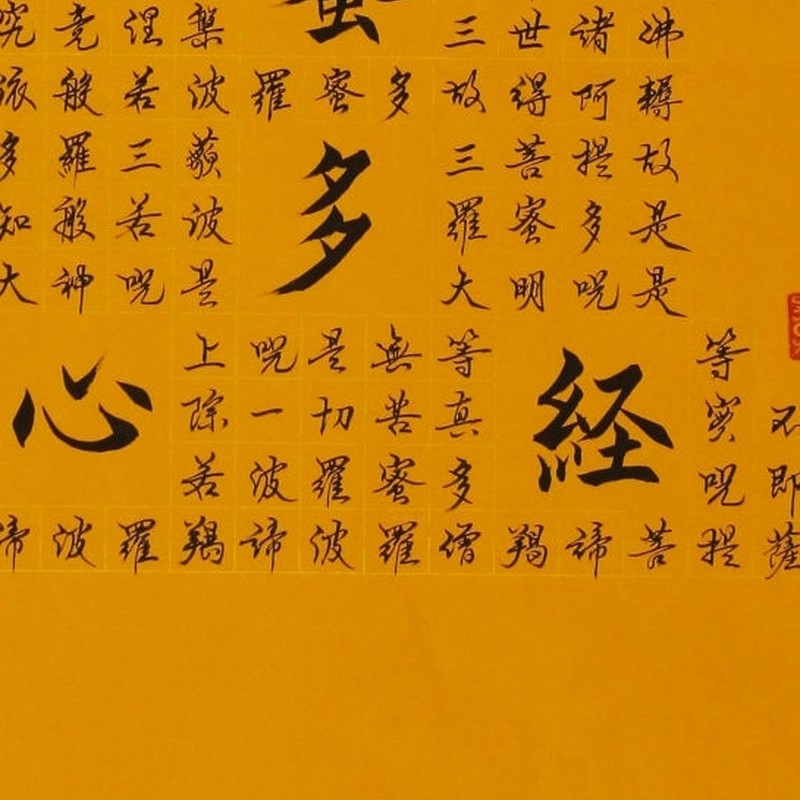 究竟涅槃三世諸佛
依般若波羅蜜多故得阿耨
多羅三藐三菩提故
知般若波羅蜜多是
大神呪是大明呪是
上呪是無等等
除一切苦真實不
若波羅蜜多呪即
諦波羅羯諦波羅僧羯諦菩提薩
蜜
多
心経